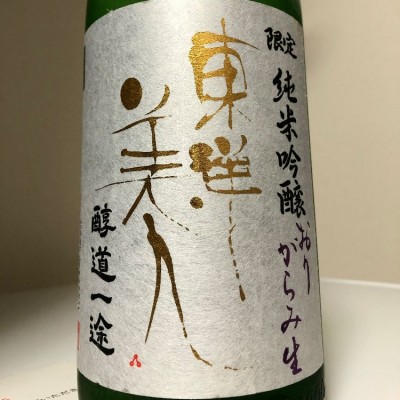 限定 純米吟醸 おりがらみ生
東洋
美人
醇道一途